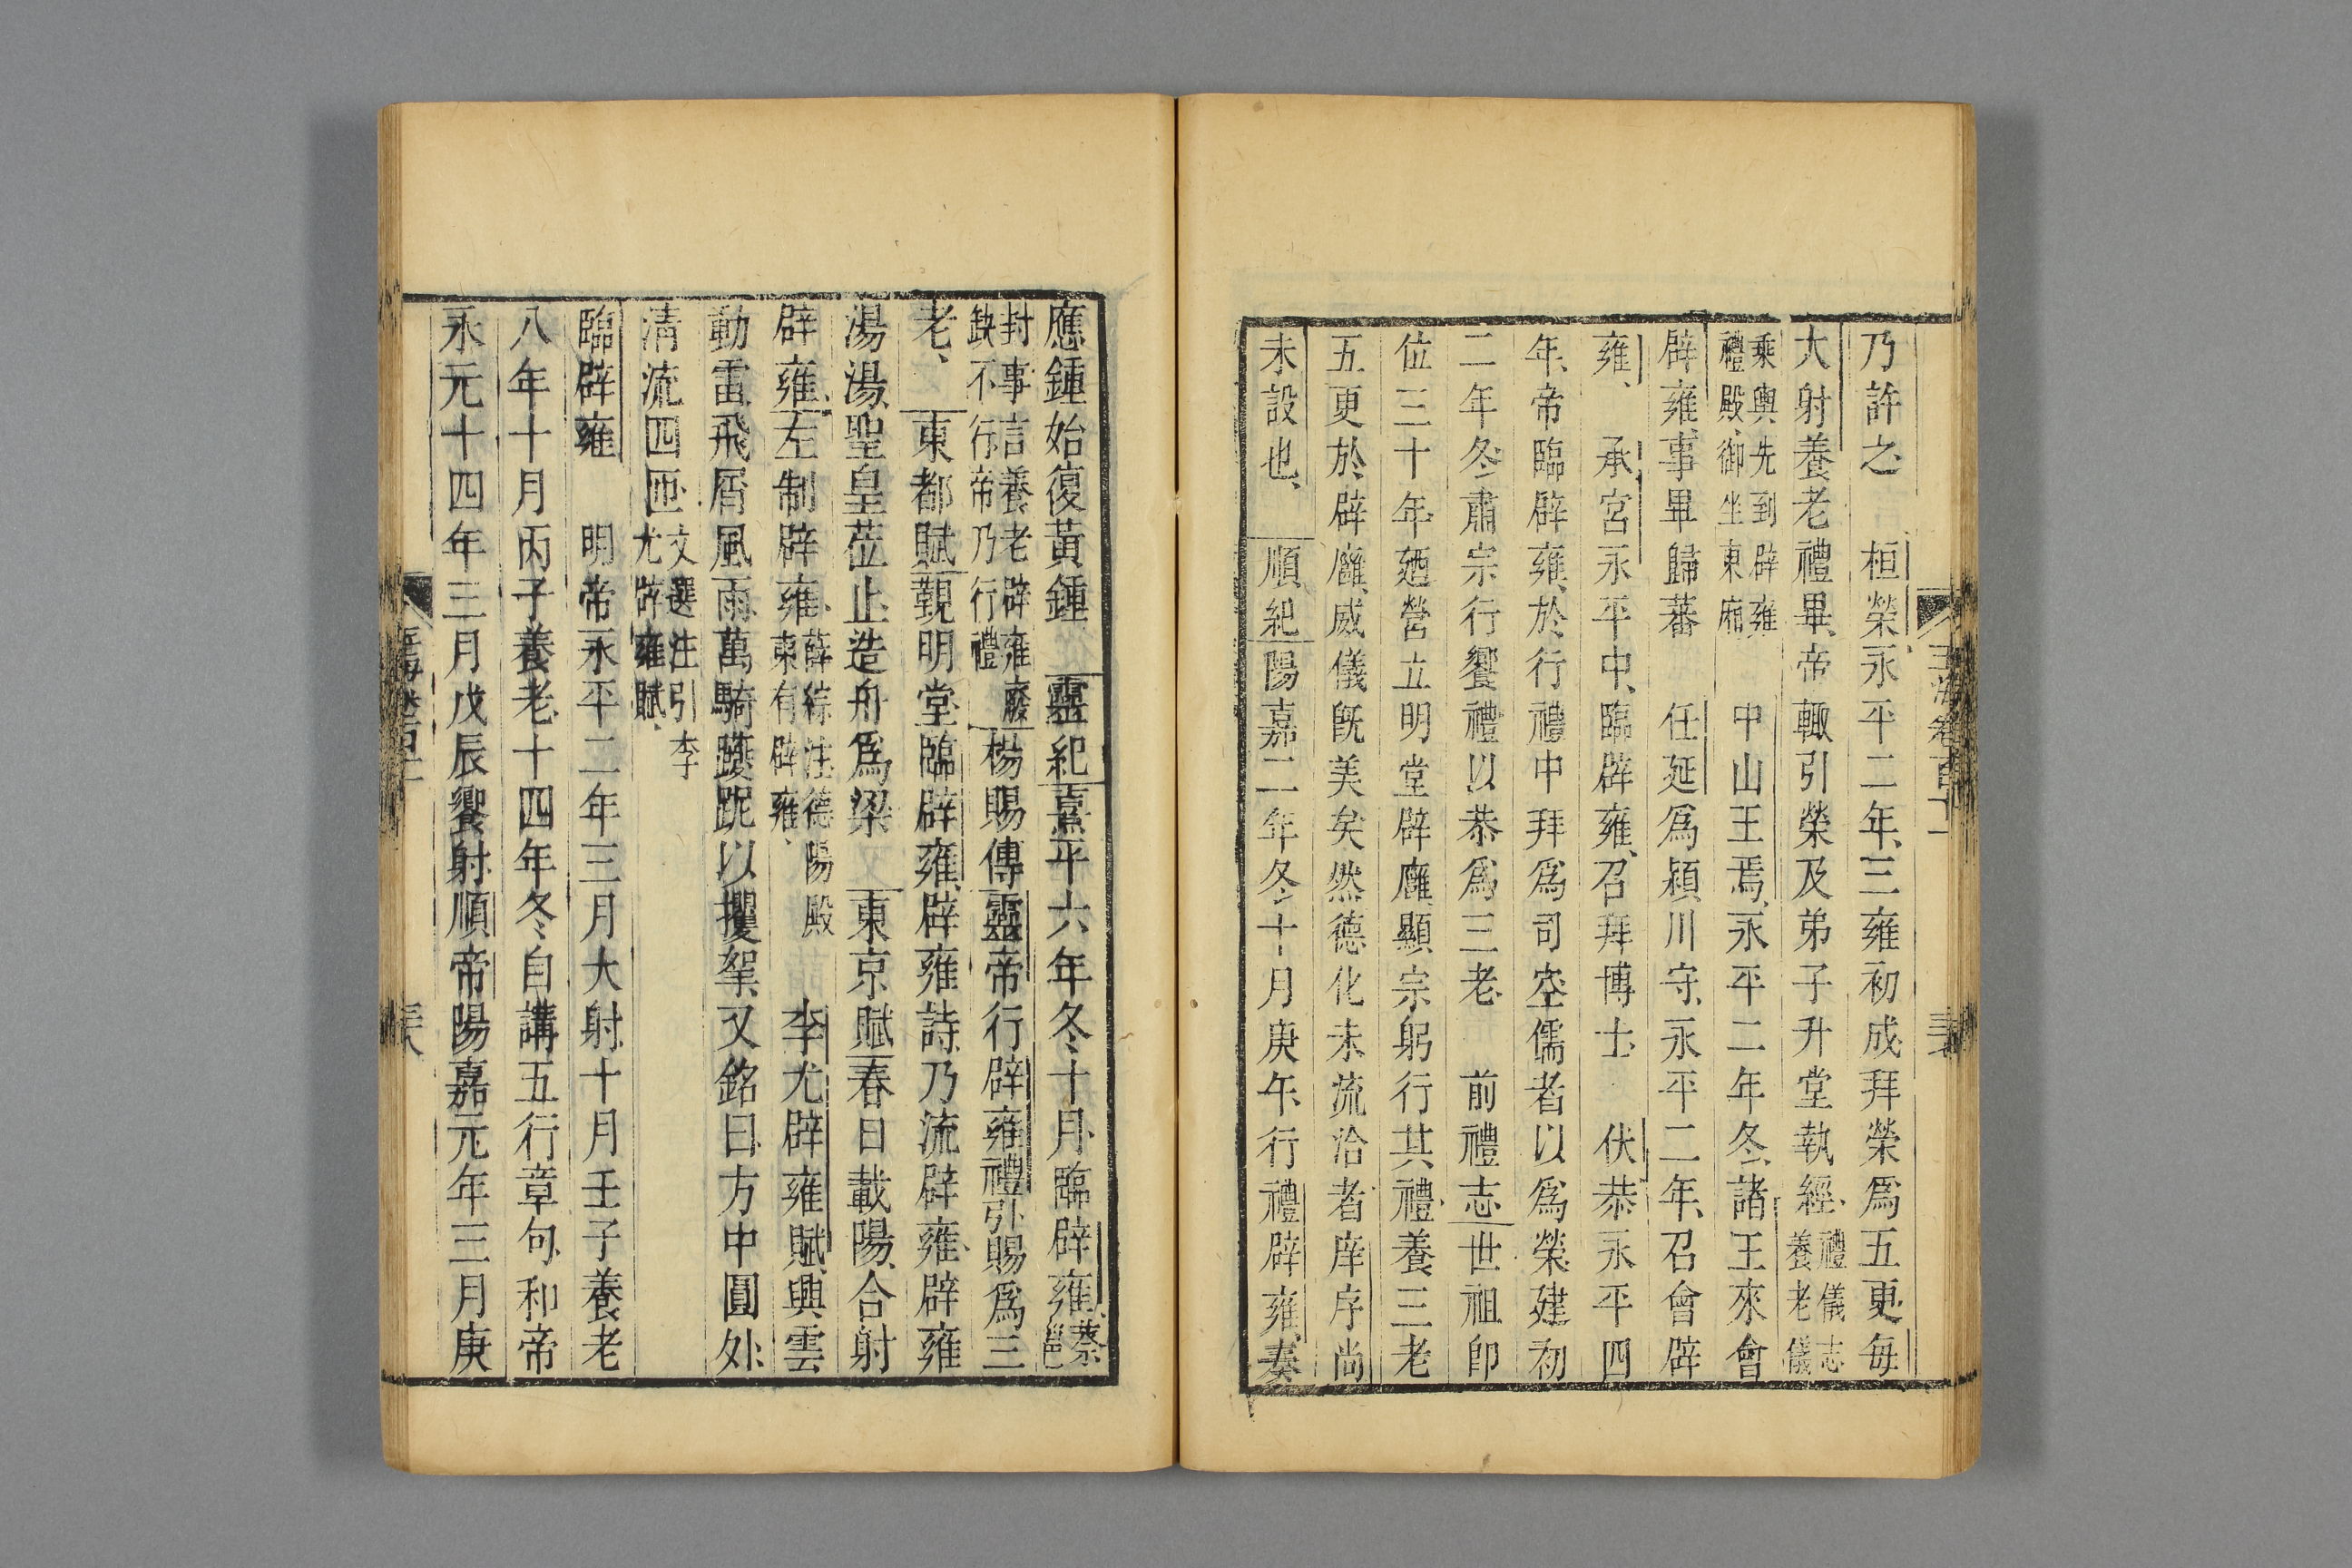 乃許之 桓榮永平二年三雍初成拜榮爲五更每
大射養老禮畢帝輙引榮及弟子升堂執經禮儀志養老儀
乘輿先到辟雍禮殿御坐東廂 中山王焉永平二年冬諸王來會
辟雍事畢歸蕃 任延爲潁川守永平二年召會辟
雍 承宮永平中臨辟雍召拜博士 伏恭永平四
年帝臨辟雍於行禮中拜爲司空儒者以爲榮建初
二年冬肅宗行饗禮以恭爲三老 前禮志世祖卽
位三十年廼營立明堂辟廱顯宗躬行其禮養三老
五更於辟廱威儀旣美矣然德化未流洽者庠序尚
未設也 順紀陽嘉二年冬十月庚午行禮辟雍奏
應鍾始復黃鍾 靈紀熹平六年冬十月臨辟雍蔡邕
封事言養老辟雍廢缺不行帝乃行禮楊賜傳靈帝行辟雍禮引賜爲三
老 東都賦覲明堂臨辟雍辟雍詩乃流辟雍辟雍
湯湯聖皇莅止造舟爲梁 東京賦春日載陽合射
辟雍左制辟雍薛綜注德陽殿東有辟雍 李尤辟雍賦興雲
動雷飛屑風雨萬騎躨跜以攫挐又銘曰方中圓外
清流四匝文選注引李尤辟雍賦
臨辟雍 明帝永平二年三月大射十月壬子養老
八年十月丙子養老十四年冬自講五行章句和帝
永元十四年三月戊辰饗射順帝陽嘉元年三月庚